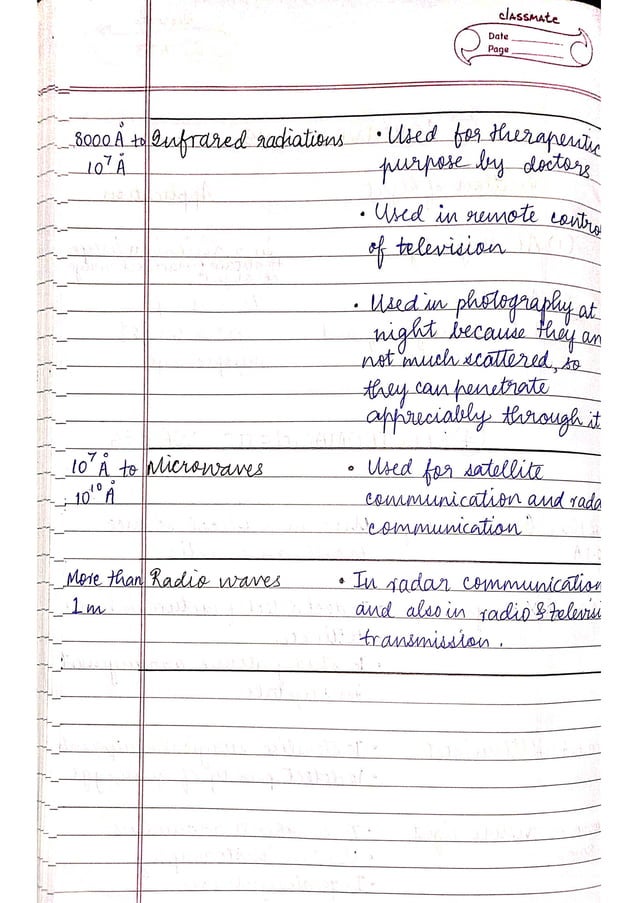 classmate
Date
Page
8000 Å to Infrared radiations • Used for therapeutic
10⁷ Å purpose by doctors
• Used in remote contro
of television
• Used in photography at
night because they ar
not much scattered, so
they can penetrate
appreciably through it
10⁷ Å to Microwaves • Used for satellite
10¹⁰ Å communication and rada
communication
More than Radio waves • In radar communication
1 m and also in radio & televisi
transmission.